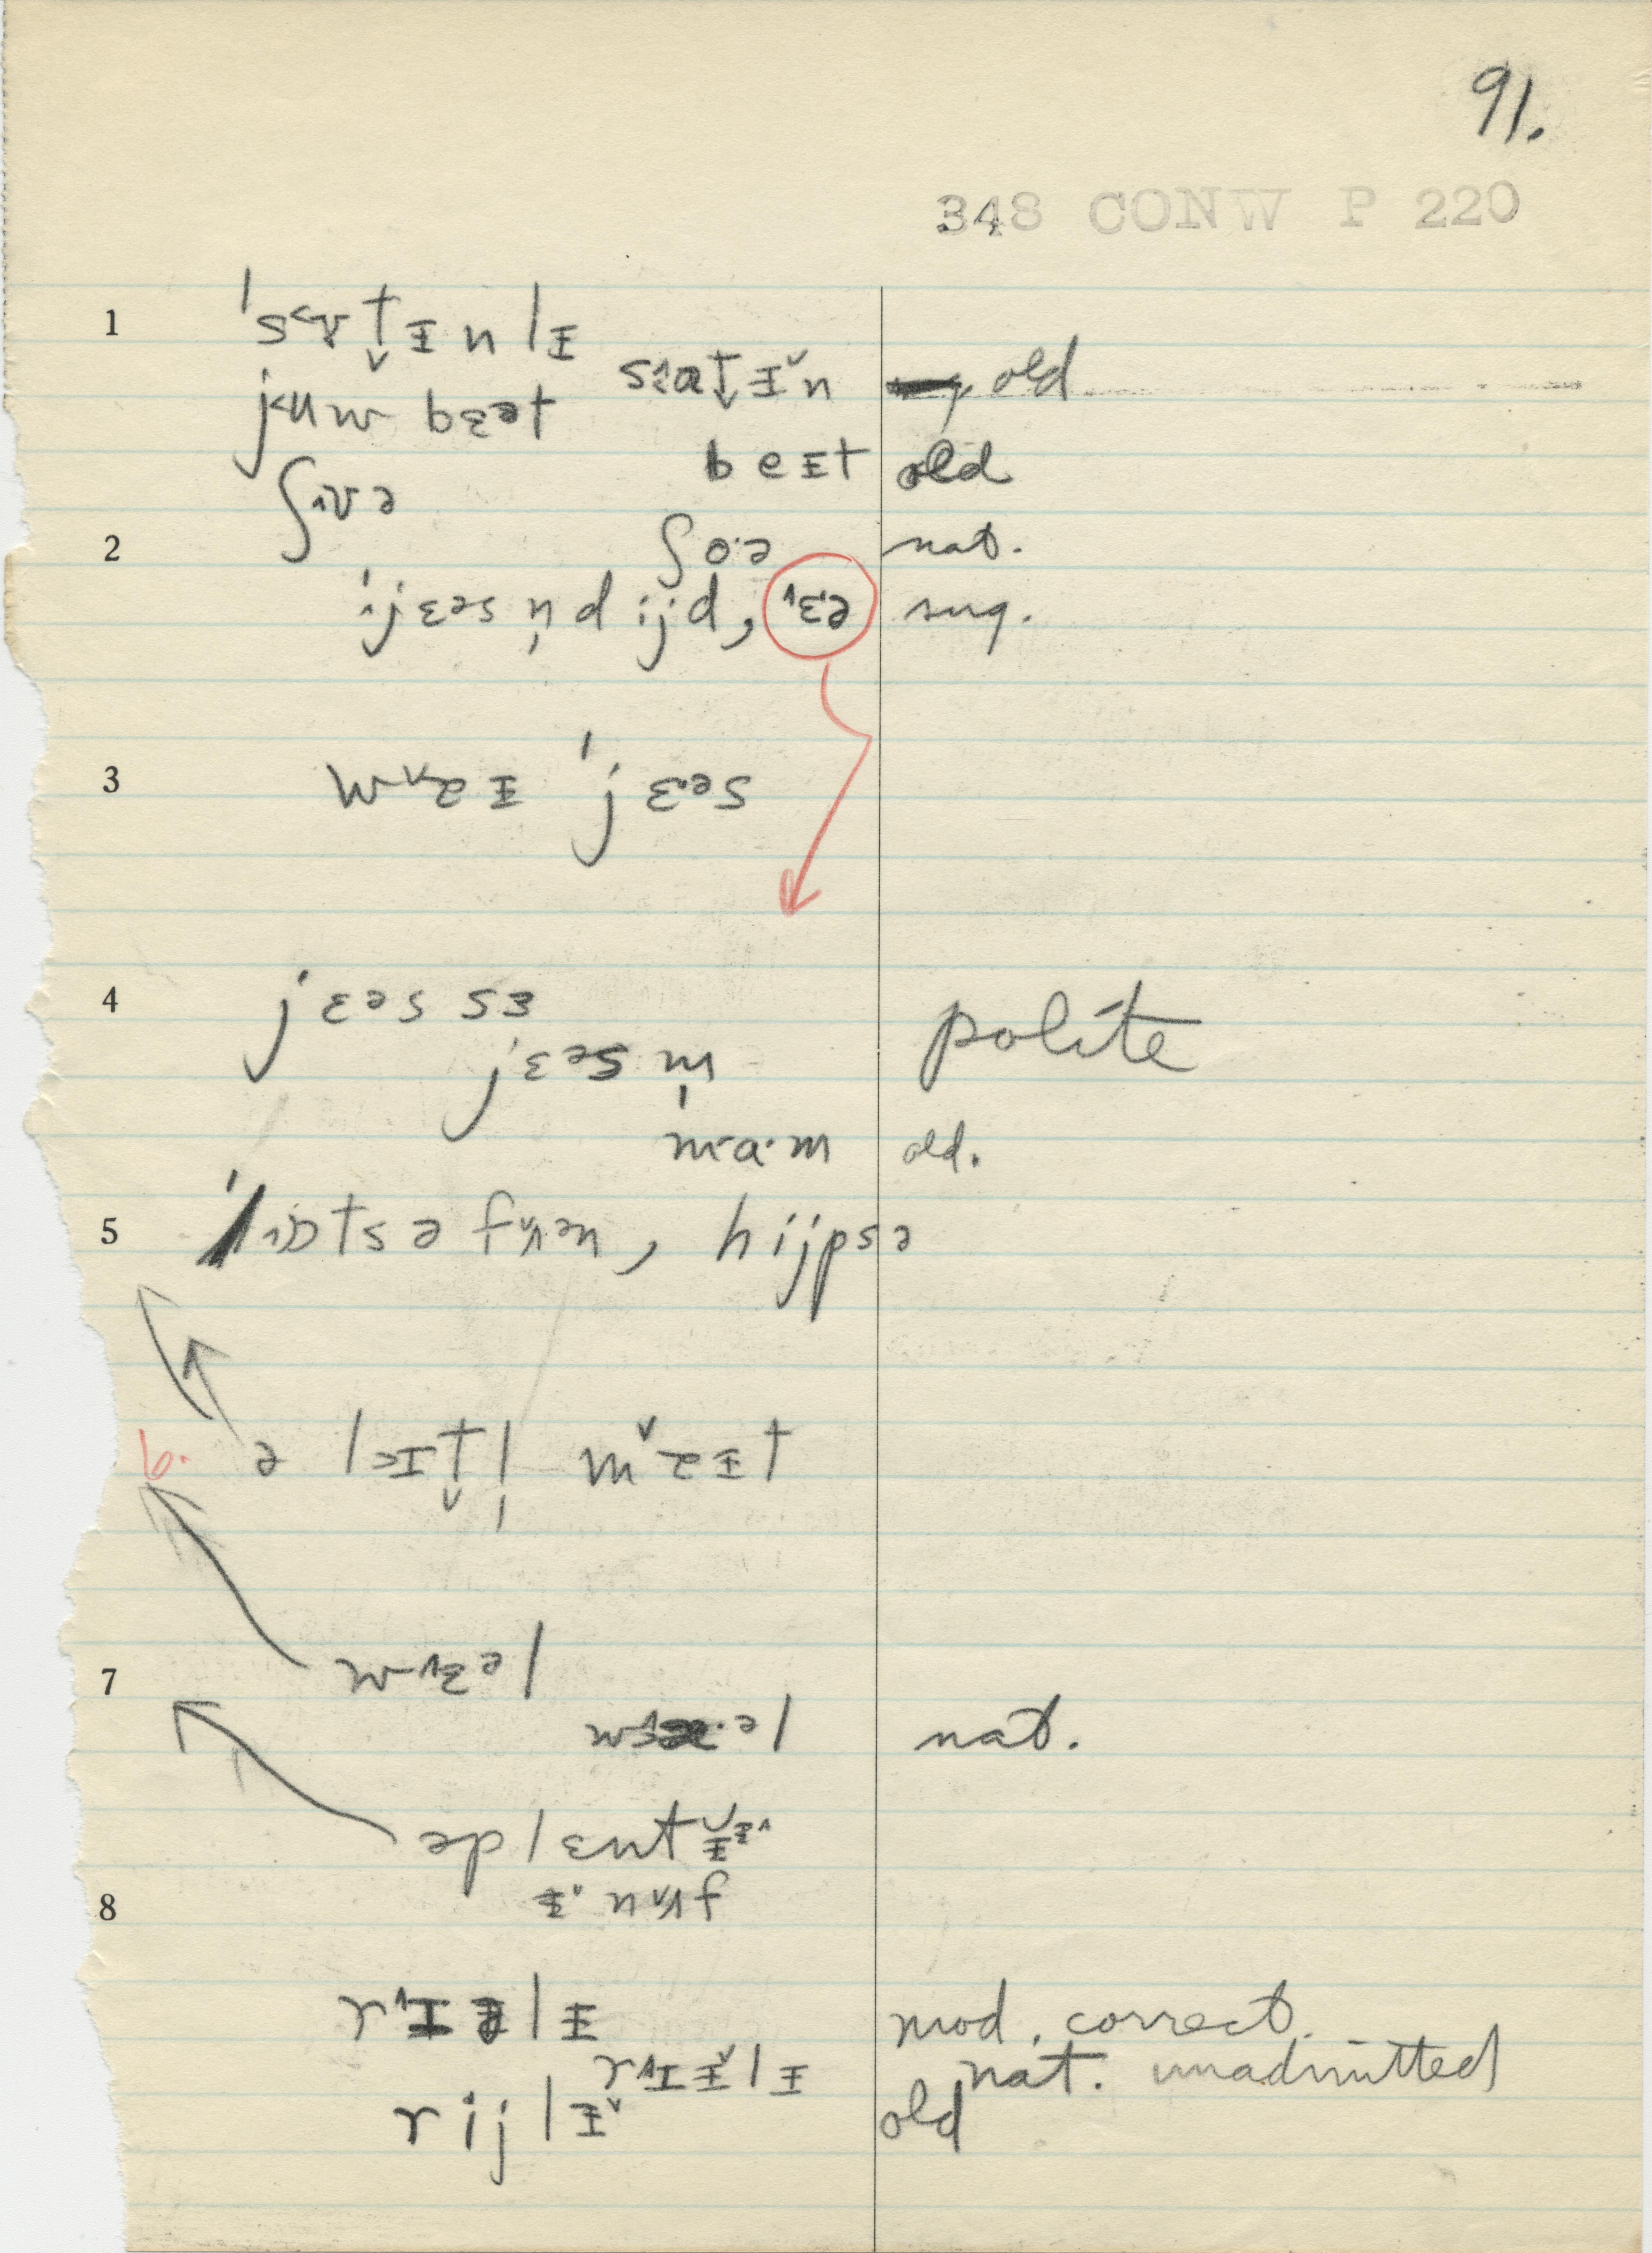 91.
348 CONW P 220
1 ˈs<ɐt̬ᵻnlᵻ
sɜ›at̬ᵻ̌n old
j<ʉw bɛət
beᵻt old
ʃ›ɐə
2 ʃo·ə nat.
ˈijɛəs n̩dijd, ɛ·ə sug.
3 wɐzᵻ ˈjɛ·əs
4 jɛəs sɜ polite
jɛəs m̩
ma·m old.
5 ˈlɒtsə fɐən, hijpsə
6. ə l>ɪt̬l̩ mɐzᵻt
7 w^ɛəl
w ·əl nat.
əplɛntᵻ
8 ᵻ· nɐf
r^ɪəlᵻ mod. correct.
r^ɪᵻ̌lᵻ nat. unadmitted
rijlᵻ̌ old